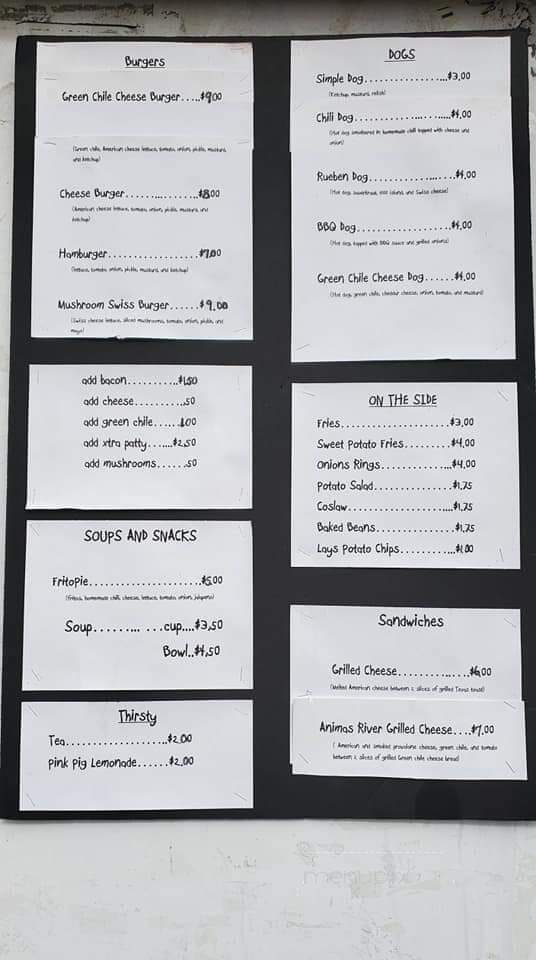 Burgers
Green Chile Cheese Burger.....$9.00
(Green chile, American cheese lettuce, tomato, onion, pickle, mustard,
and ketchup)
Cheese Burger..................$8.00
(American cheese lettuce, tomato, onion, pickle, mustard, and
ketchup)
Hamburger...................$7.00
(lettuce, tomato, onion, pickle, mustard, and ketchup)
Mushroom Swiss Burger......$9.00
(Swiss cheese lettuce, sliced mushrooms, tomato, onion, pickle, and
mayo)
add bacon..........$1.50
add cheese..........50
add green chile.....1.00
add xtra patty......$2.50
add mushrooms......50
SOUPS AND SNACKS
Fritopie......................$5.00
(Fritos, homemade chili, cheese, lettuce, tomato, onion, jalapeno)
Soup......... ...cup....$3.50
Bowl..$4.50
Thirsty
Tea...................$2.00
Pink Pig Lemonade......$2.00
DOGS
Simple Dog..................$3.00
(Ketchup, mustard, relish)
Chili Dog.......................$4.00
(Hot dog smothered in homemade chili topped with cheese and
onion)
Rueben Dog..................$4.00
(Hot dog, sauerkraut, 1000 island, and Swiss cheese)
BBQ Dog...................$4.00
(Hot dog, topped with BBQ sauce and grilled onions)
Green Chile Cheese Dog......$4.00
(Hot dog, green chile, cheddar cheese, onion, tomato, and mustard)
ON THE SIDE
Fries......................$3.00
Sweet Potato Fries.........$4.00
Onions Rings..............$4.00
Potato Salad...............$1.75
Coslaw.....................$1.75
Baked Beans...............$1.75
Lays Potato Chips...........$1.00
Sandwiches
Grilled Cheese..............$6.00
(Melted American cheese between 2 slices of grilled Texas toast)
Animas River Grilled Cheese....$7.00
( American and smoked provolone cheese, green chile, and tomato
between 2 slices of grilled Green chile cheese bread)